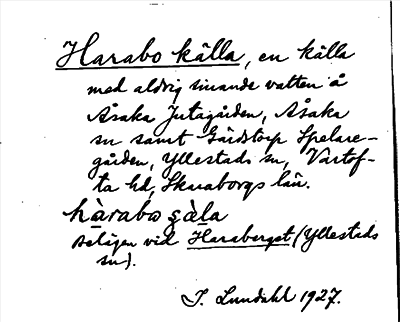 Harabo källa, en källa
med aldrig sinande vatten å
Åsaka Jutagården, Åsaka
sn samt Gärdstorp Spelare-
gården, Yllestads sn, Vartof-
ta hd, Skaraborgs län.
hàrabo ɕàla
belägen vid Haraberget (Yllestads
sn).
S. Lundahl 1927.